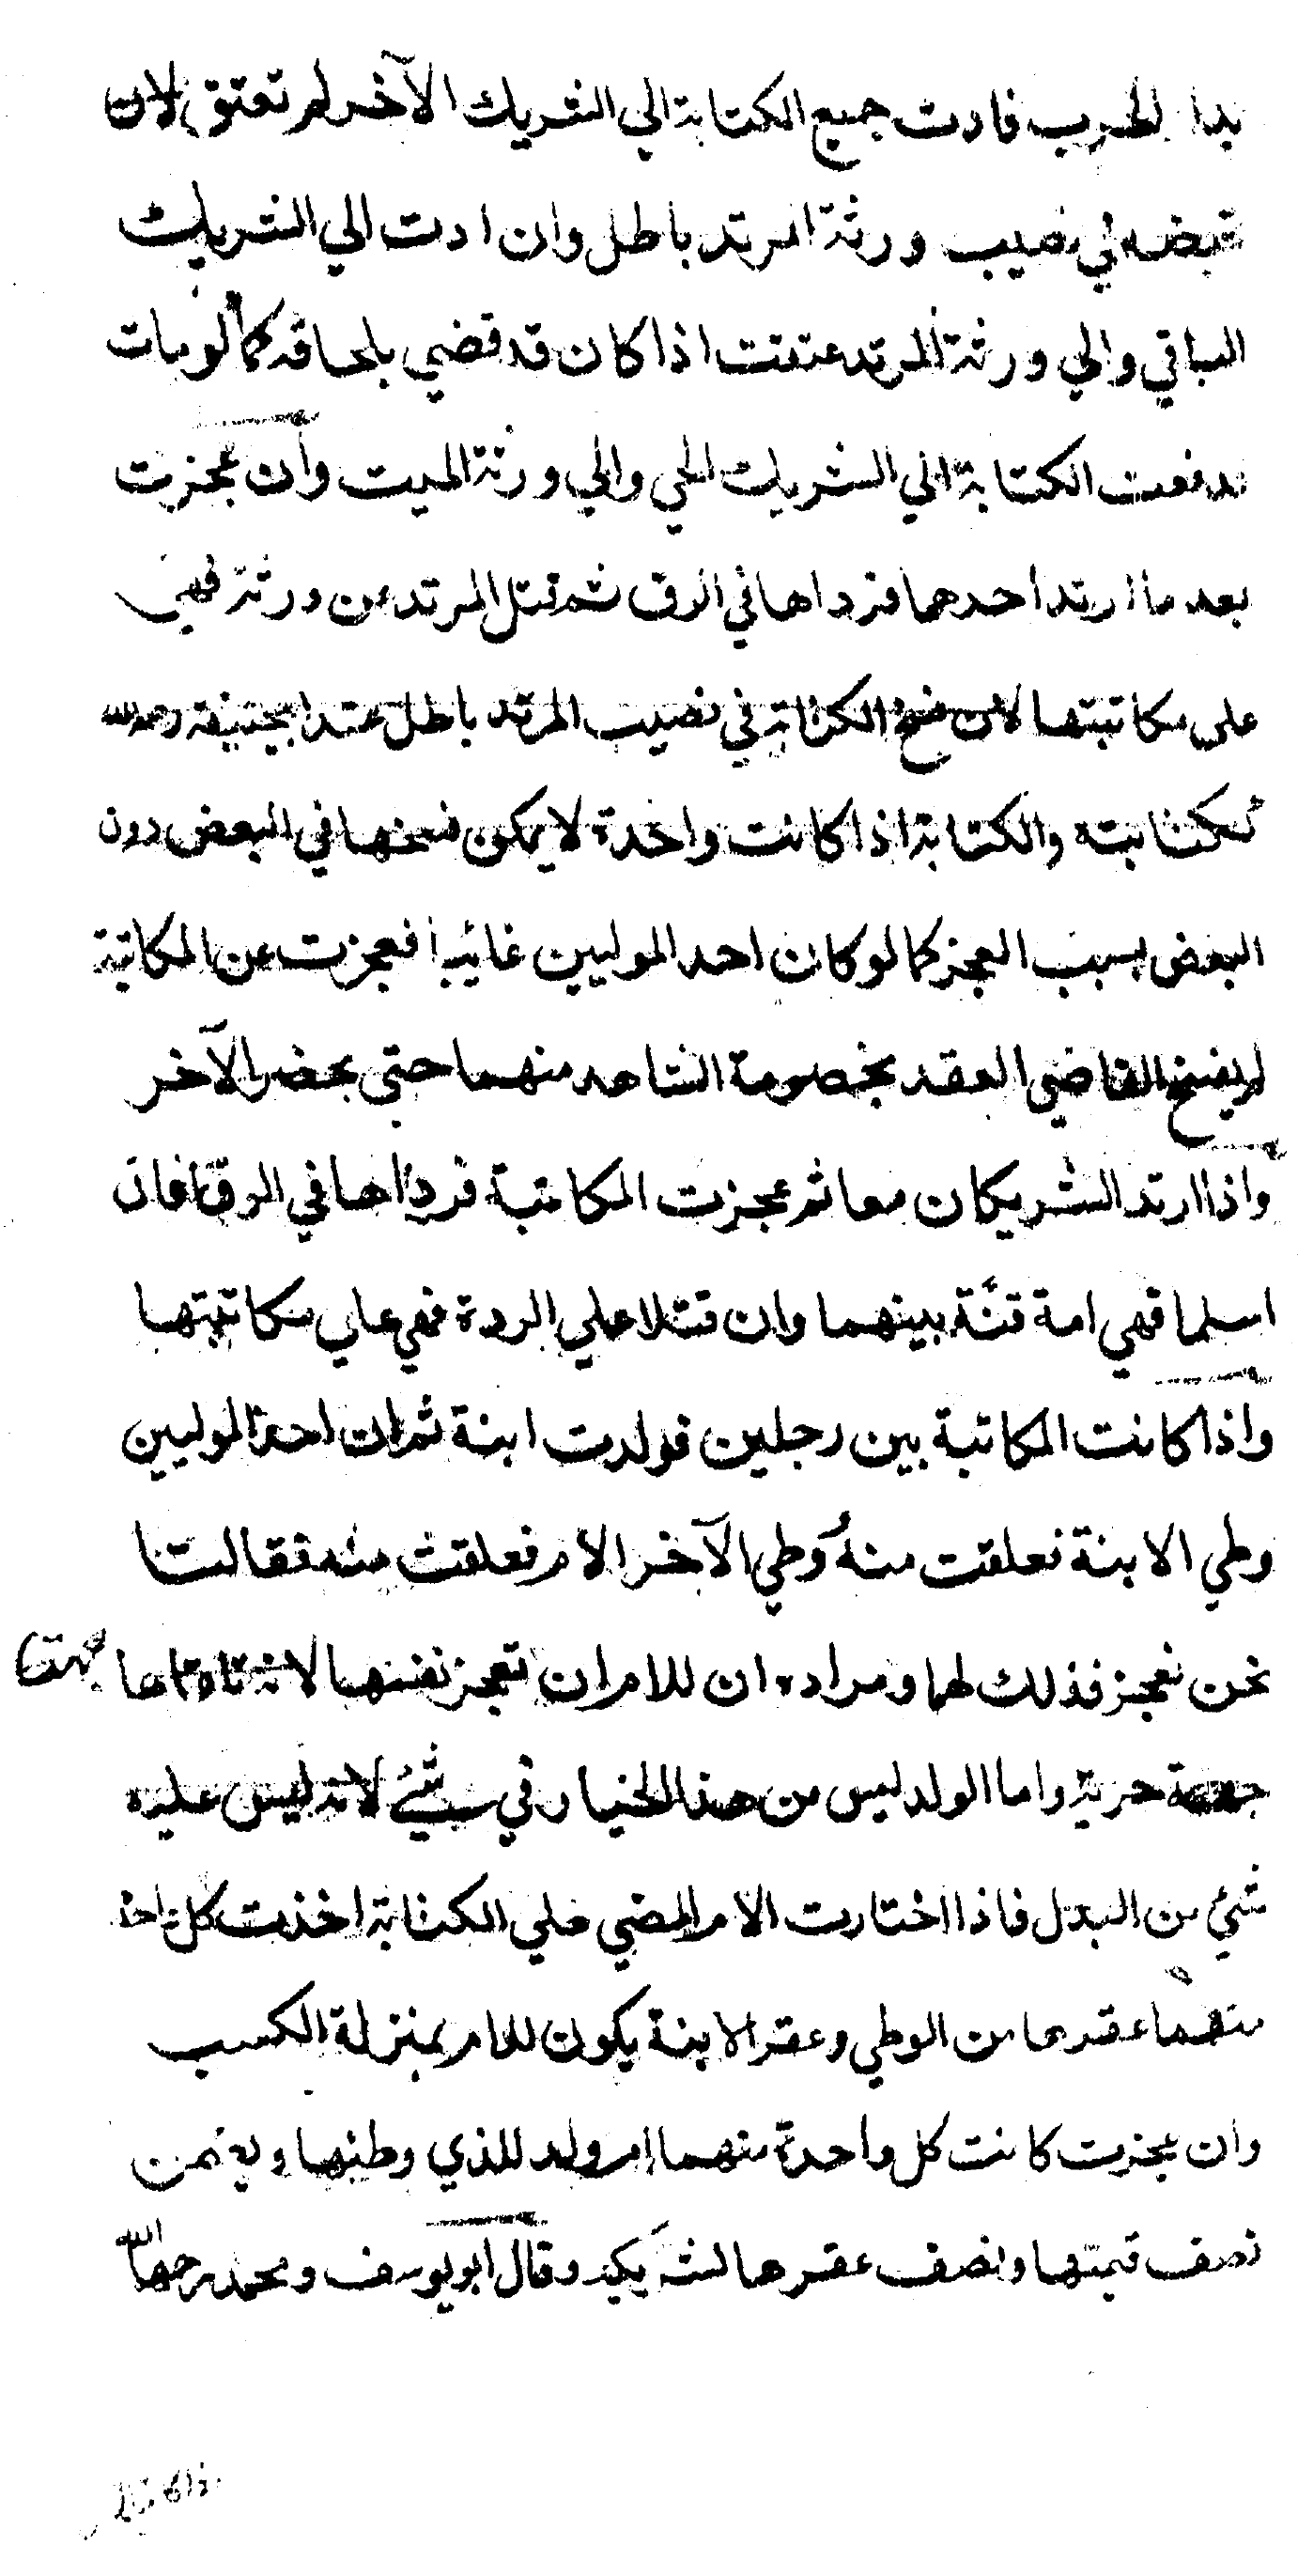 بدار الحرب فادت جميع الكتابة الي الشريك الآخر لم تعتق لان
قبضه في نصيب ورثة المرتد باطل وان ادت الي الشريك
الباقي والي ورثة المرتد عتقت اذا كان قد قضي بلحاقه كما لو مات
فدفعت الكتابة الي الشريك الحي والي ورثة الميت وان عجزت
بعد ما ارتد احدهما فرداها في الرق ثم قتل المرتد عن ورثة فهي
علي مكاتبتها لان فسخ الكتابة في نصيب المرتد باطل عند ابيحنيفة رحمه الله
ككتابته والكتابة اذا كانت واحدة لا يمكن فسخها في البعض دون
البعض بسبب العجز كما لو كان احد الموليين غايبا فعجزت عن المكاتبة
لم يفسخ القاضي العقد بخصومة الشاهد منهما حتى يحضر الآخر
واذا ارتد الشريكان معا ثم عجزت المكاتبة فرداها في الرق فان
اسلما فهي امة قنة بينهما وان قتلا علي الردة فهي علي مكاتبتها
واذا كانت المكاتبة بين رجلين فولدت ابنة ثم ان احد الموليين
وطي الابنة فعلقت منه ووطي الآخر الام فعلقت منه فقالتا
نحن نعجز فذلك لهما ومراده ان للام ان تعجز نفسها لانه تلقاها جهتا
حرية واما الولد ليس من هذا الخيار في شيء لانه ليس عليه
شيء من البدل فاذا اختارت الام المضي علي الكتابة اخذت كل واحدة
منهما عقرها من الوطي وعقر الابنة يكون للام بمنزلة الكسب
وان عجزت كانت كل واحدة منهما ام ولد للذي وطئها ويضمن
نصف قيمتها ونصف عقرها لشريكه وقال ابو يوسف ومحمد رحمهما الله